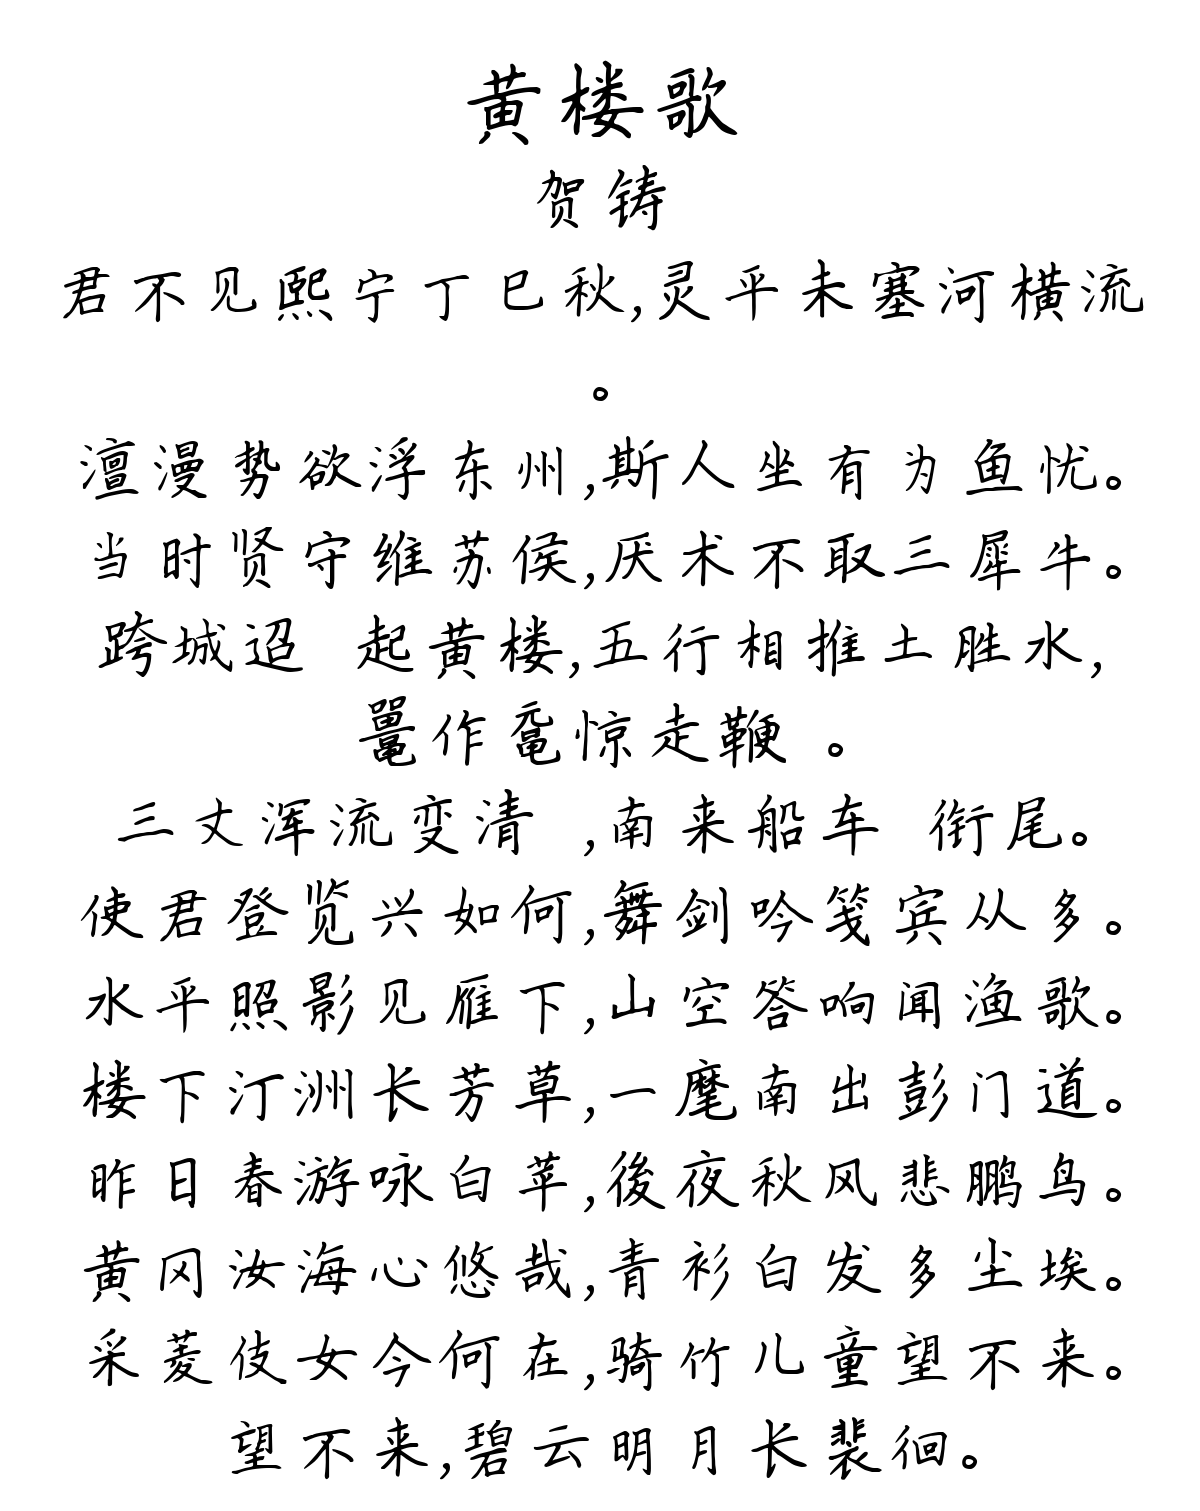 黄楼歌
贺铸
君不见熙宁丁巳秋,灵平未塞河横流
。
澶漫势欲浮东州,斯人坐有为鱼忧。
当时贤守维苏侯,厌术不取三犀牛。
跨城迢 起黄楼,五行相推土胜水,
鼍作鼋惊走鞭 。
三丈浑流变清 ,南来船车 衔尾。
使君登览兴如何,舞剑吟笺宾从多。
水平照影见雁下,山空答响闻渔歌。
楼下汀洲长芳草,一麾南出彭门道。
昨日春游咏白苹,後夜秋风悲鹏鸟。
黄冈汝海心悠哉,青衫白发多尘埃。
采菱伎女今何在,骑竹儿童望不来。
望不来,碧云明月长裴徊。